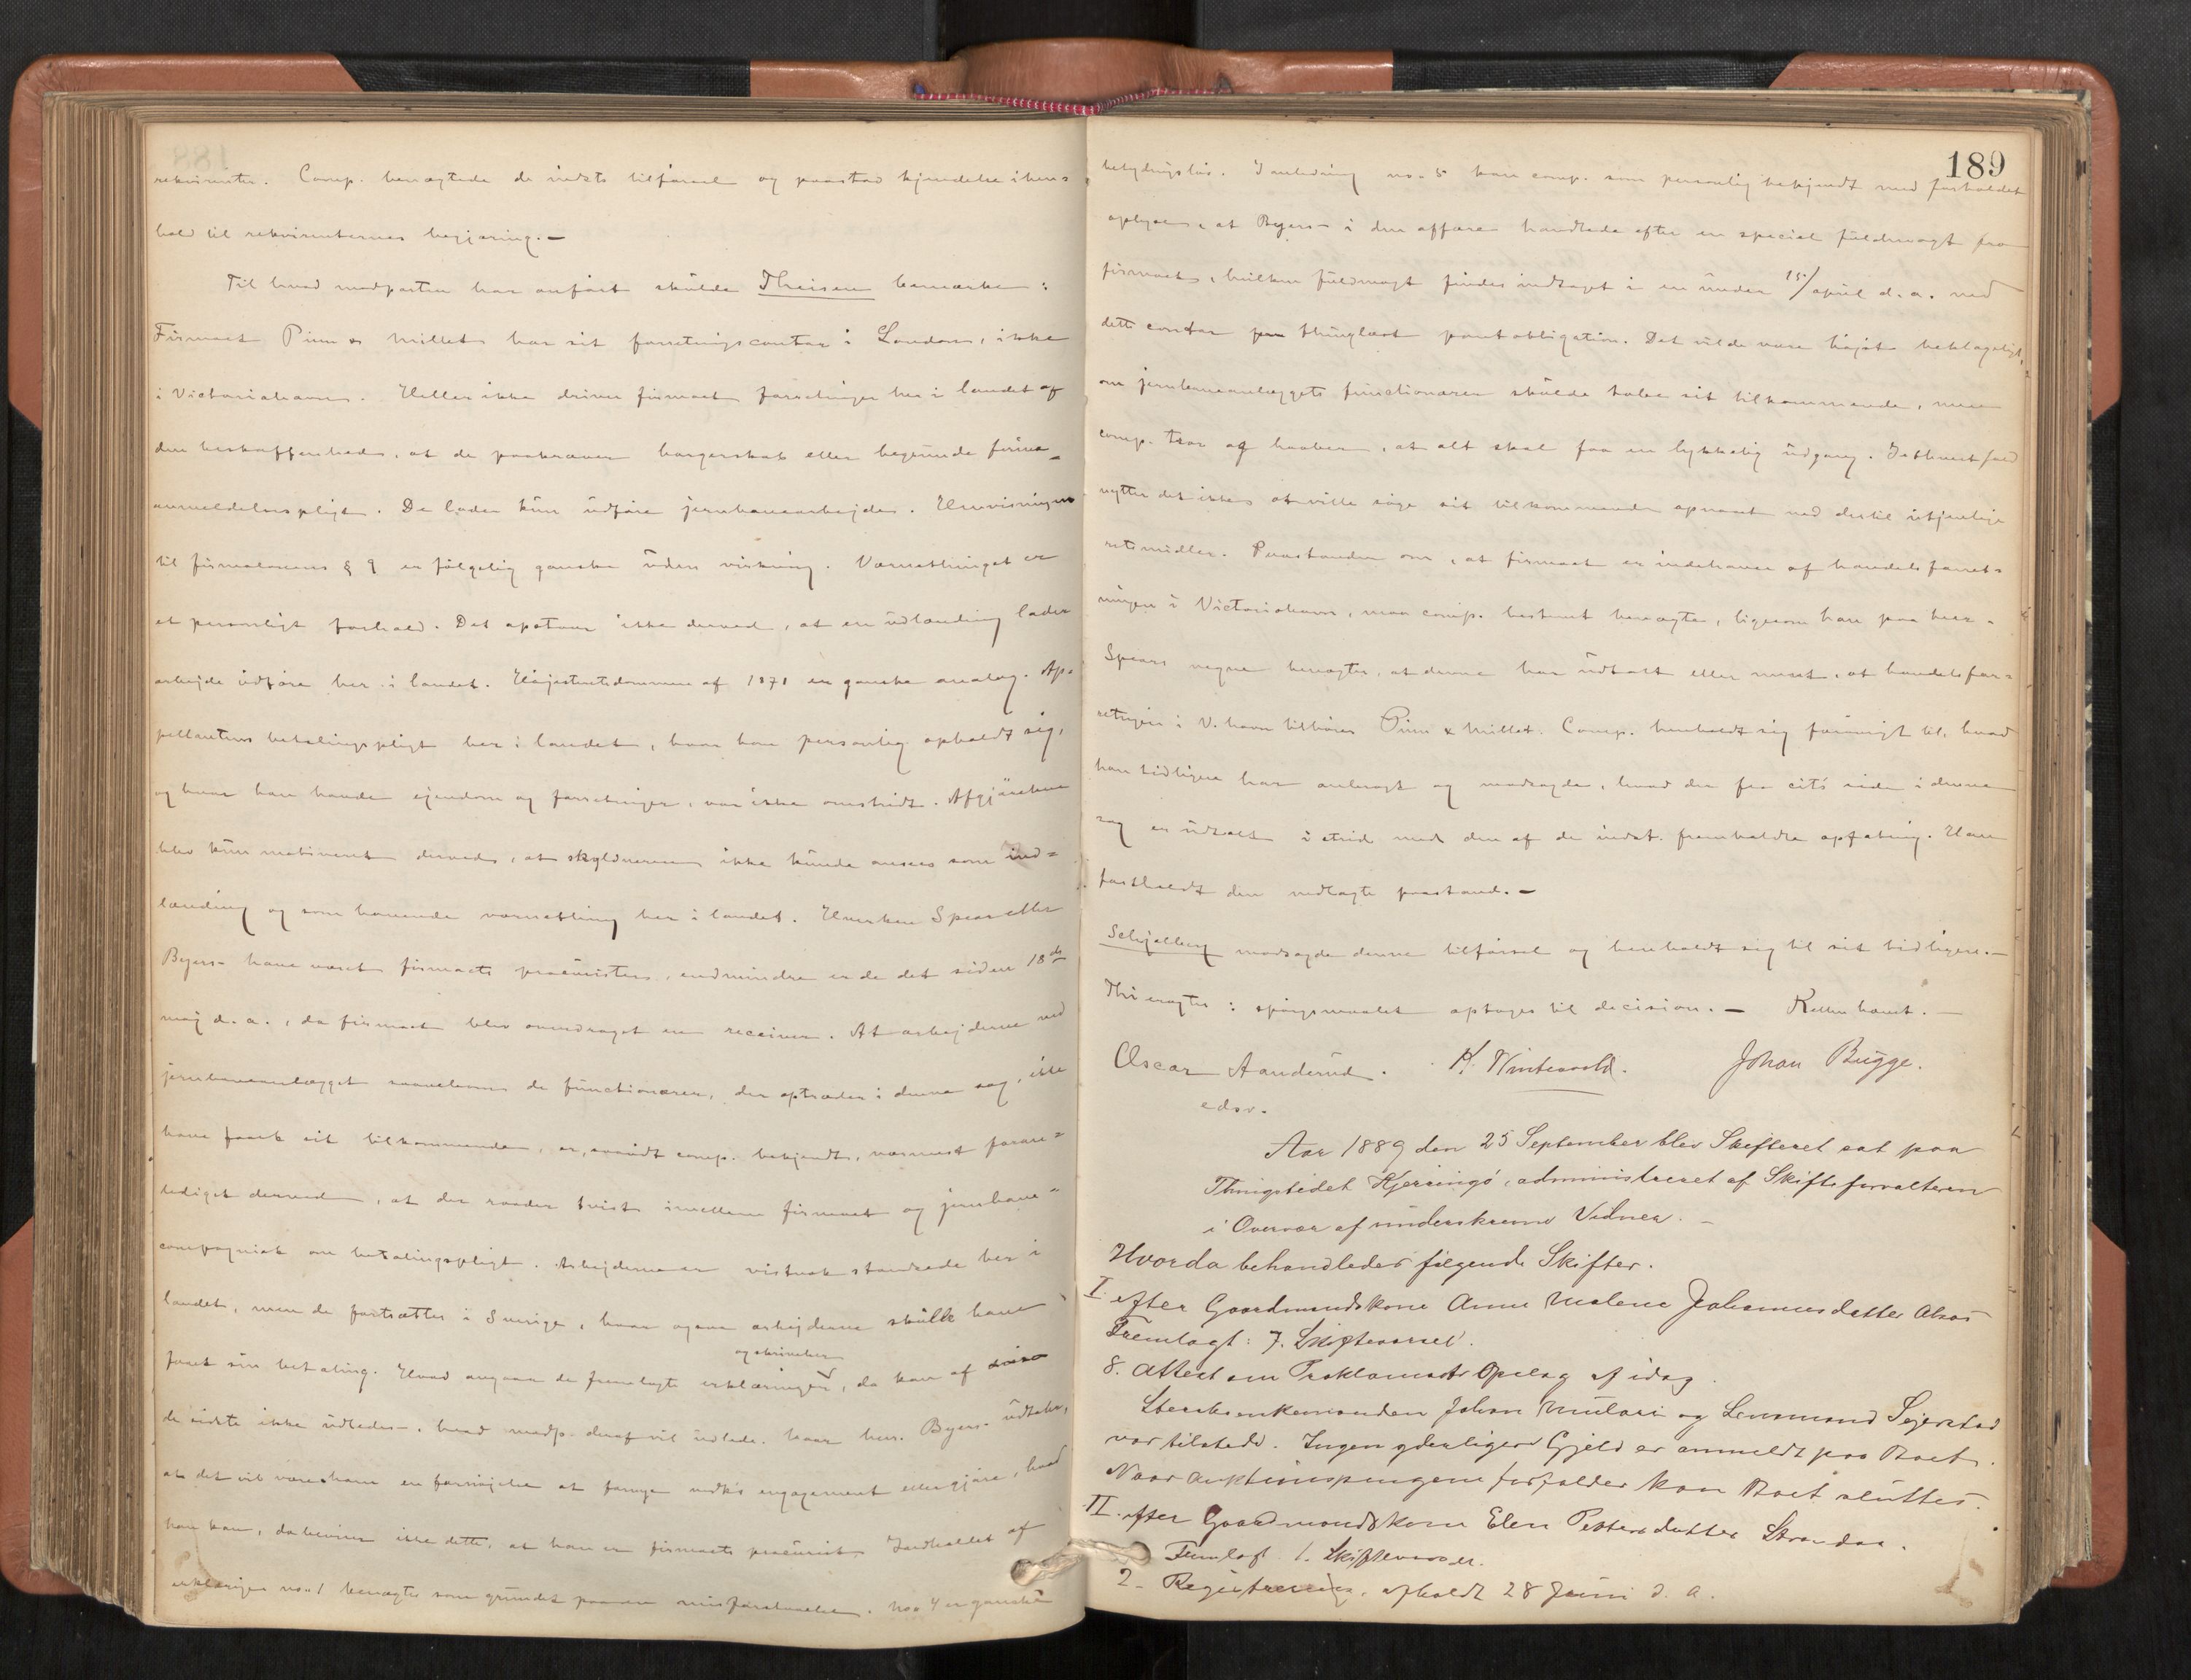 rekvirenter. Comp. benægtede de indsts tilførsel og paastod kjendelse i hen=
hold til rekvirenternes begjæring.—
Til hvad modparten har anført skulde Theisen bemærke:
Firmaet Pinn & Millet har sit forretningscontor i London, ikke
i Victoriahavn. Heller ikke driver firmaet forretninger her i landet af
den beskaffenhed, at de paakræver borgerskab eller begrunde firma=
anmeldelsespligt. De lader kun udføre jernbanearbejder. Henvisningen
til firmalovens § 9 er følgelig ganske uden virkning. Værnethinget er
et personligt forhold. Det opstaar ikke derved, at en udlænding lader
arbejde udføre her i landet. Højesteretsdommen af 1871 er ganske analog. Ap=
pellantens betalingspligt her i landet, hvor han personlig opholdt sig,
og hvor han havde ejendom og forretninger, var ikke omstridt. Afgjørelsen
blev kun motiveret derved, at skyldneren ikke kunde ansees som ind=
lænding og som havende værnething her i landet. Hverken Spear eller
Byers have været firmaets procurister, endmindre er de det siden 18de
maj d. a., da firmaet blev overdraget en receiver. At arbejderne ved
jernbaneanlægget saavelsom de functionærer, der optræder i denne sag, ikke
have faaet sit tilkommende, er, saavidt comp. bekjendt, nærmest foran=
lediget derved, at der raader tvist imellem firmaet og jernbane=
compagniet om betalingspligt. Arbejderne er vistnok standsede her i
landet, men de fortsættes i Sverige, hvor ogsaa arbejderne skulle have
faaet sin betaling. Hvad angaar de fremlagte erklæringer og skrivelser, da kan af
de sidste ikke udledes, hvad modp. deraf vil udlede. Naar herr Byers udtaler,
at det vil være ham en fornøjelse at fornye engagement eller gjøre, hvad
han kan, da beviser ikke dette, at han er firmaets procurist. Indholdet af
erklæringen no. 1 benægtes som grundet paa en misforstaaelse. No. 4 er ganske
189
betydningsløs. I anledning no. 5 kan comp. som personlig bekjendt med forholdet
oplyse, at Byers i den affære handlede efter en special fuldmagt fra
firmaet, hvilken fuldmagt findes indtaget i en under 15/ april d. a. ved
dette contor thinglæst pantobligation. Det vilde være højst beklageligt,
om jernbaneanlæggets functionærer skulde tabe sit tilkommende, men
comp. tror og haaber, at alt skal faa en lykkelig udgang. I ethvert fald
nytter det ikke at ville søge sit tilkommende opnaaet ved dertil utjenlige
retsmidler. Paastanden om, at firmaet er indehaver af handelsforret=
ningen i Victoriahavn, maa comp. bestemt benægte, ligesom han paa herr
Spears vegne benægter, at denne har udtalt eller ment, at handelsfor=
retngen i V. havn tilhører Pinn & Millet. Comp. henholdt sig forøvrigt til, hvad
han tidligere har anbragt og modsagde, hvad der fra cits side i denne
sag er udtalt i strid med den af de indst. fremholdte opfatning. Han
fastholdt den nedlagte paastand.—
Schjelberg modsagde denne tilførsel og henholdt sig til sit tidligere.—
Thi eragtes: spørgsmaalet optages til decision.— Retten hævet.—
Oscar Aanderud. K. Wintervold. Johan Bugge.
edsv.
Aar 1889 den 25 September blev Skifteret sat paa
Thingstedet Kjerringø, administreret af Skifteforvalteren
i Overvær af underskrevne Vidner.—
Hvorda behandledes følgende Skifter.
I. efter Gaardmandskone Anne Malene Johannesdatter Alsos
Fremlagt: 7. Skiftevarsel.
8. Attest om Proklamats Opslag af idag.
Sterboenkemanden Johan og Lensmand Sejerstad
var tilstede. Ingen yderligere Gjeld er anmeldt paa Boet.
Naar Auktionspengene forfalder kan Boet sluttes.
II. efter Gaardmandskone Elen Pettersdatter Strandaa.
Fremlagt 1. Skiftevarsel.
2. Registrering, afholdt 28 Juni d. a.